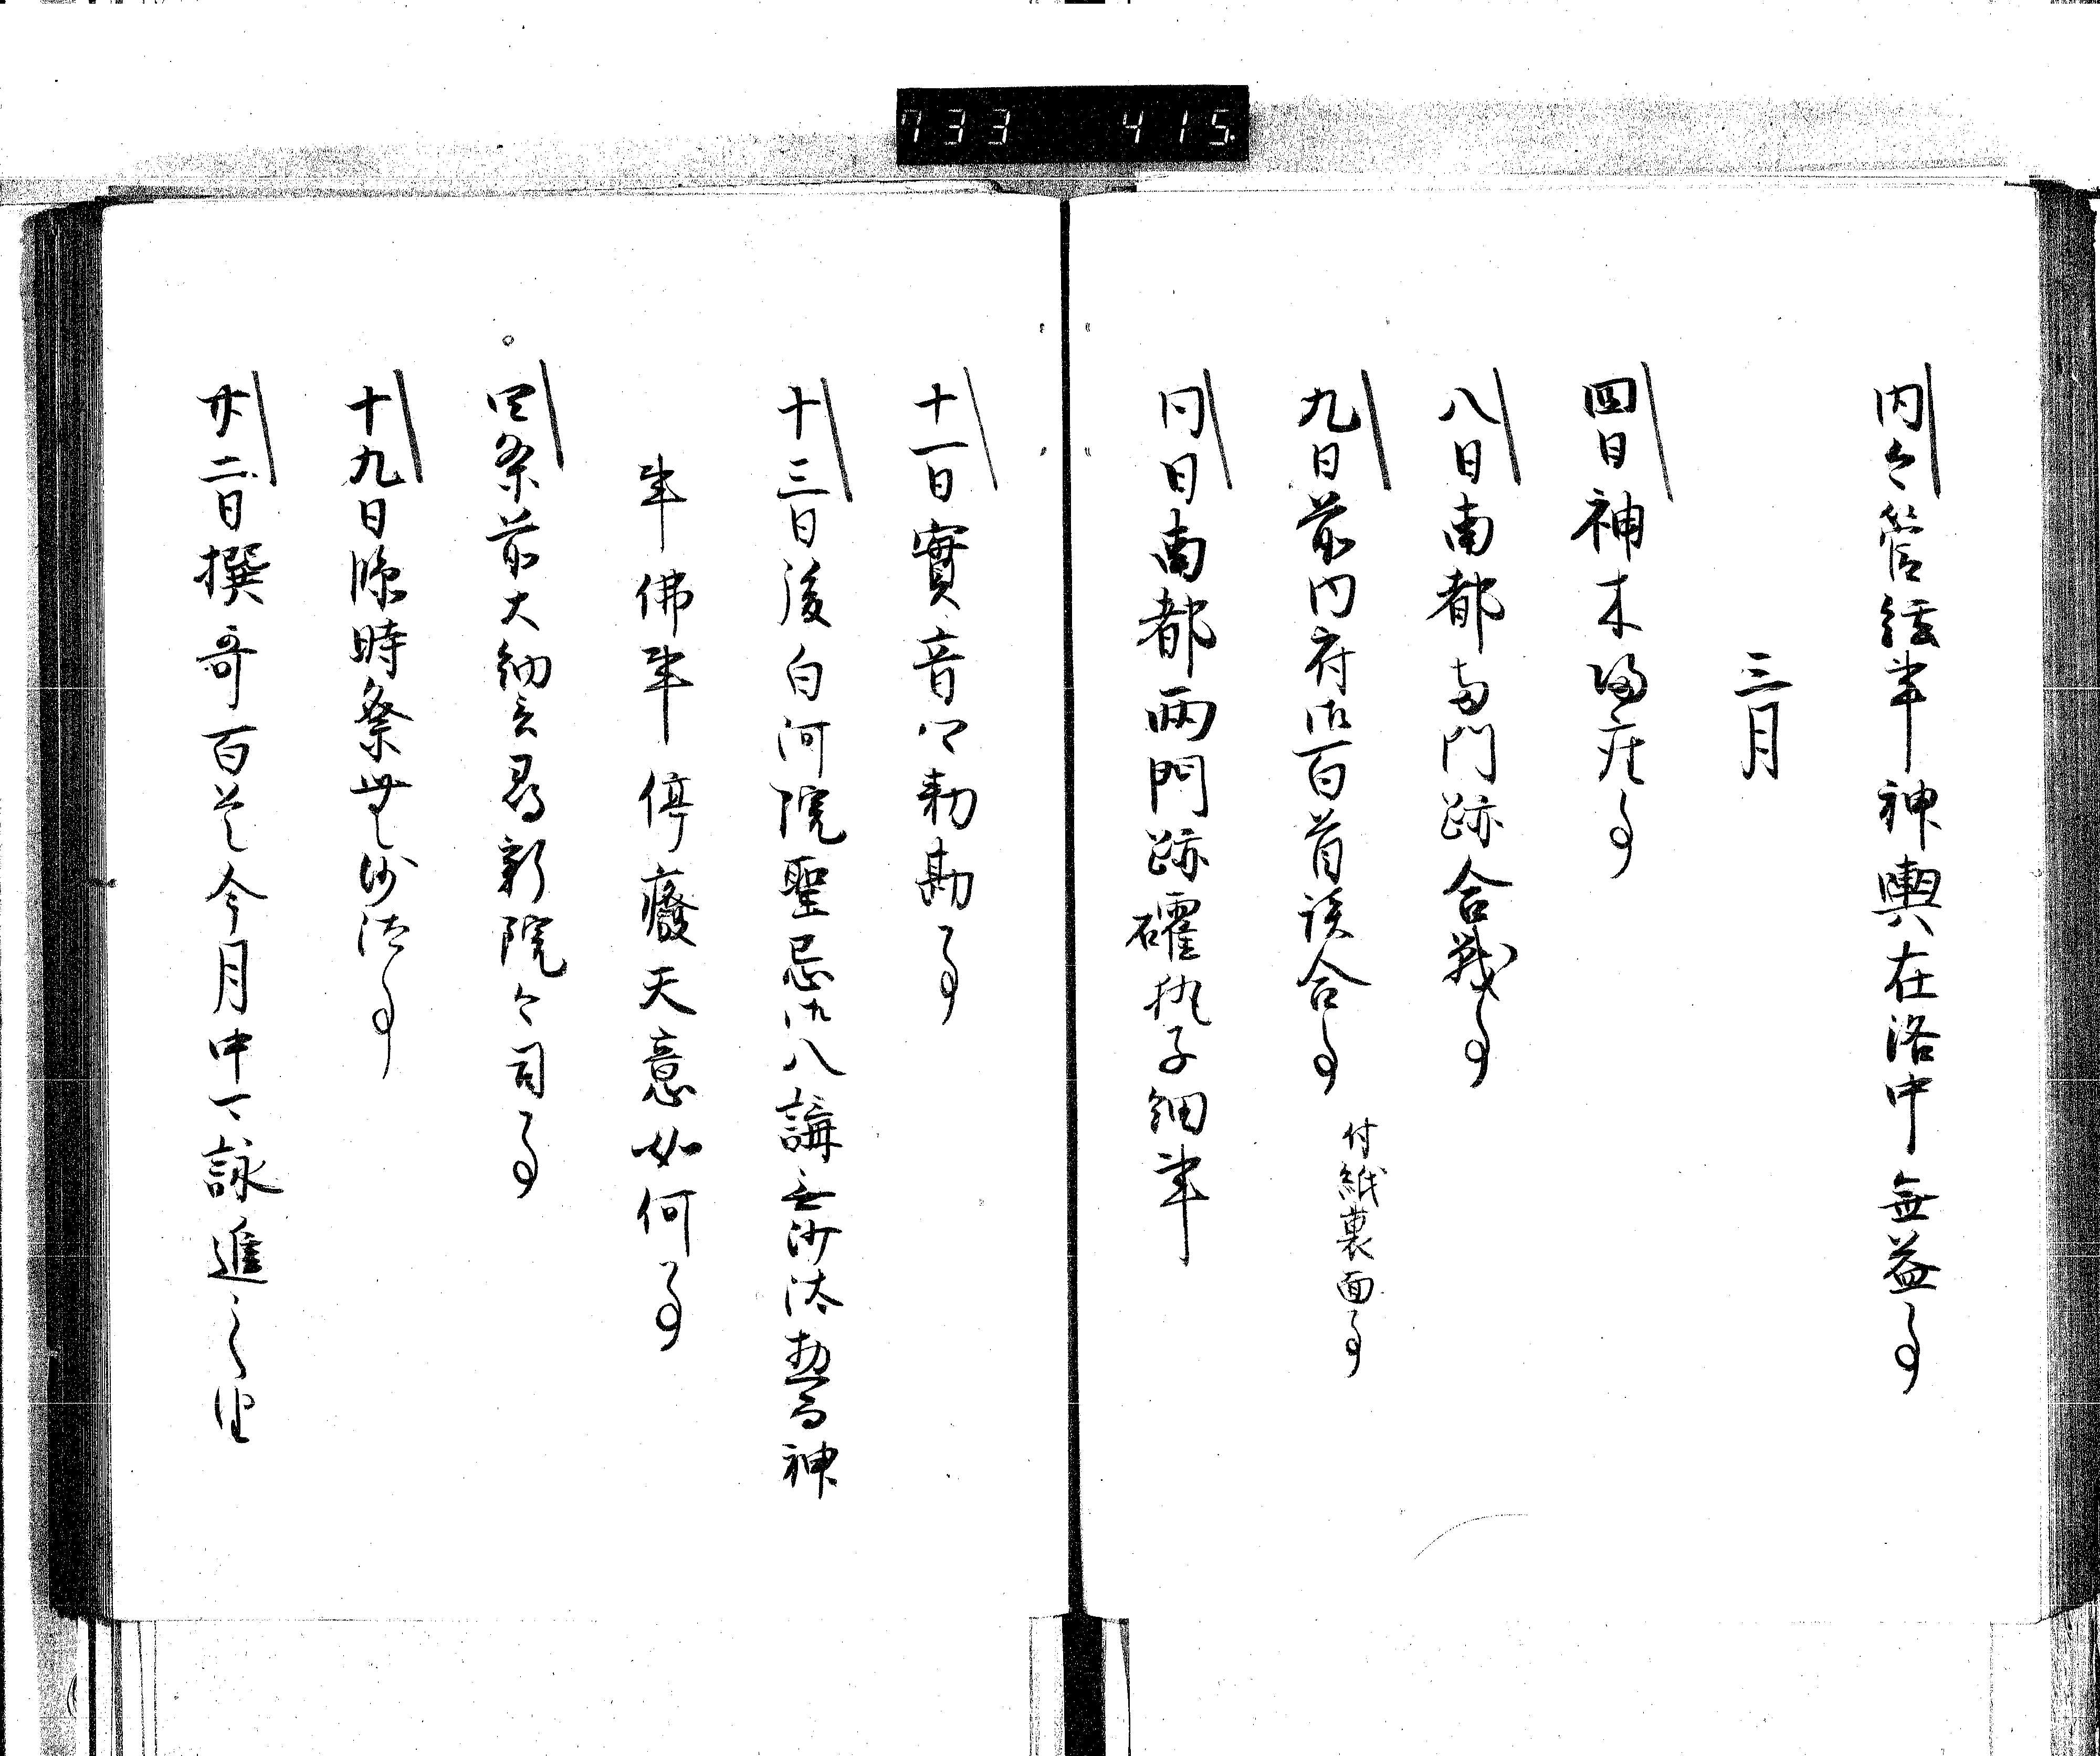 733 415
内々管絃事神輿在洛中無益事
三月
四日神木帰座事
八日南都両門跡合戦事
九日前内府御百首談合事 付紙裏面事
同日南都両門跡確執子細事
十一日實音卿勅勘事
十三日後白河院聖忌御八講無沙汰惣而神
事佛事停癈天意如何事
四条前大納言尋新院々司事
十九日臨時祭無沙汰事
廿二日撰哥百首今月中可詠進之由